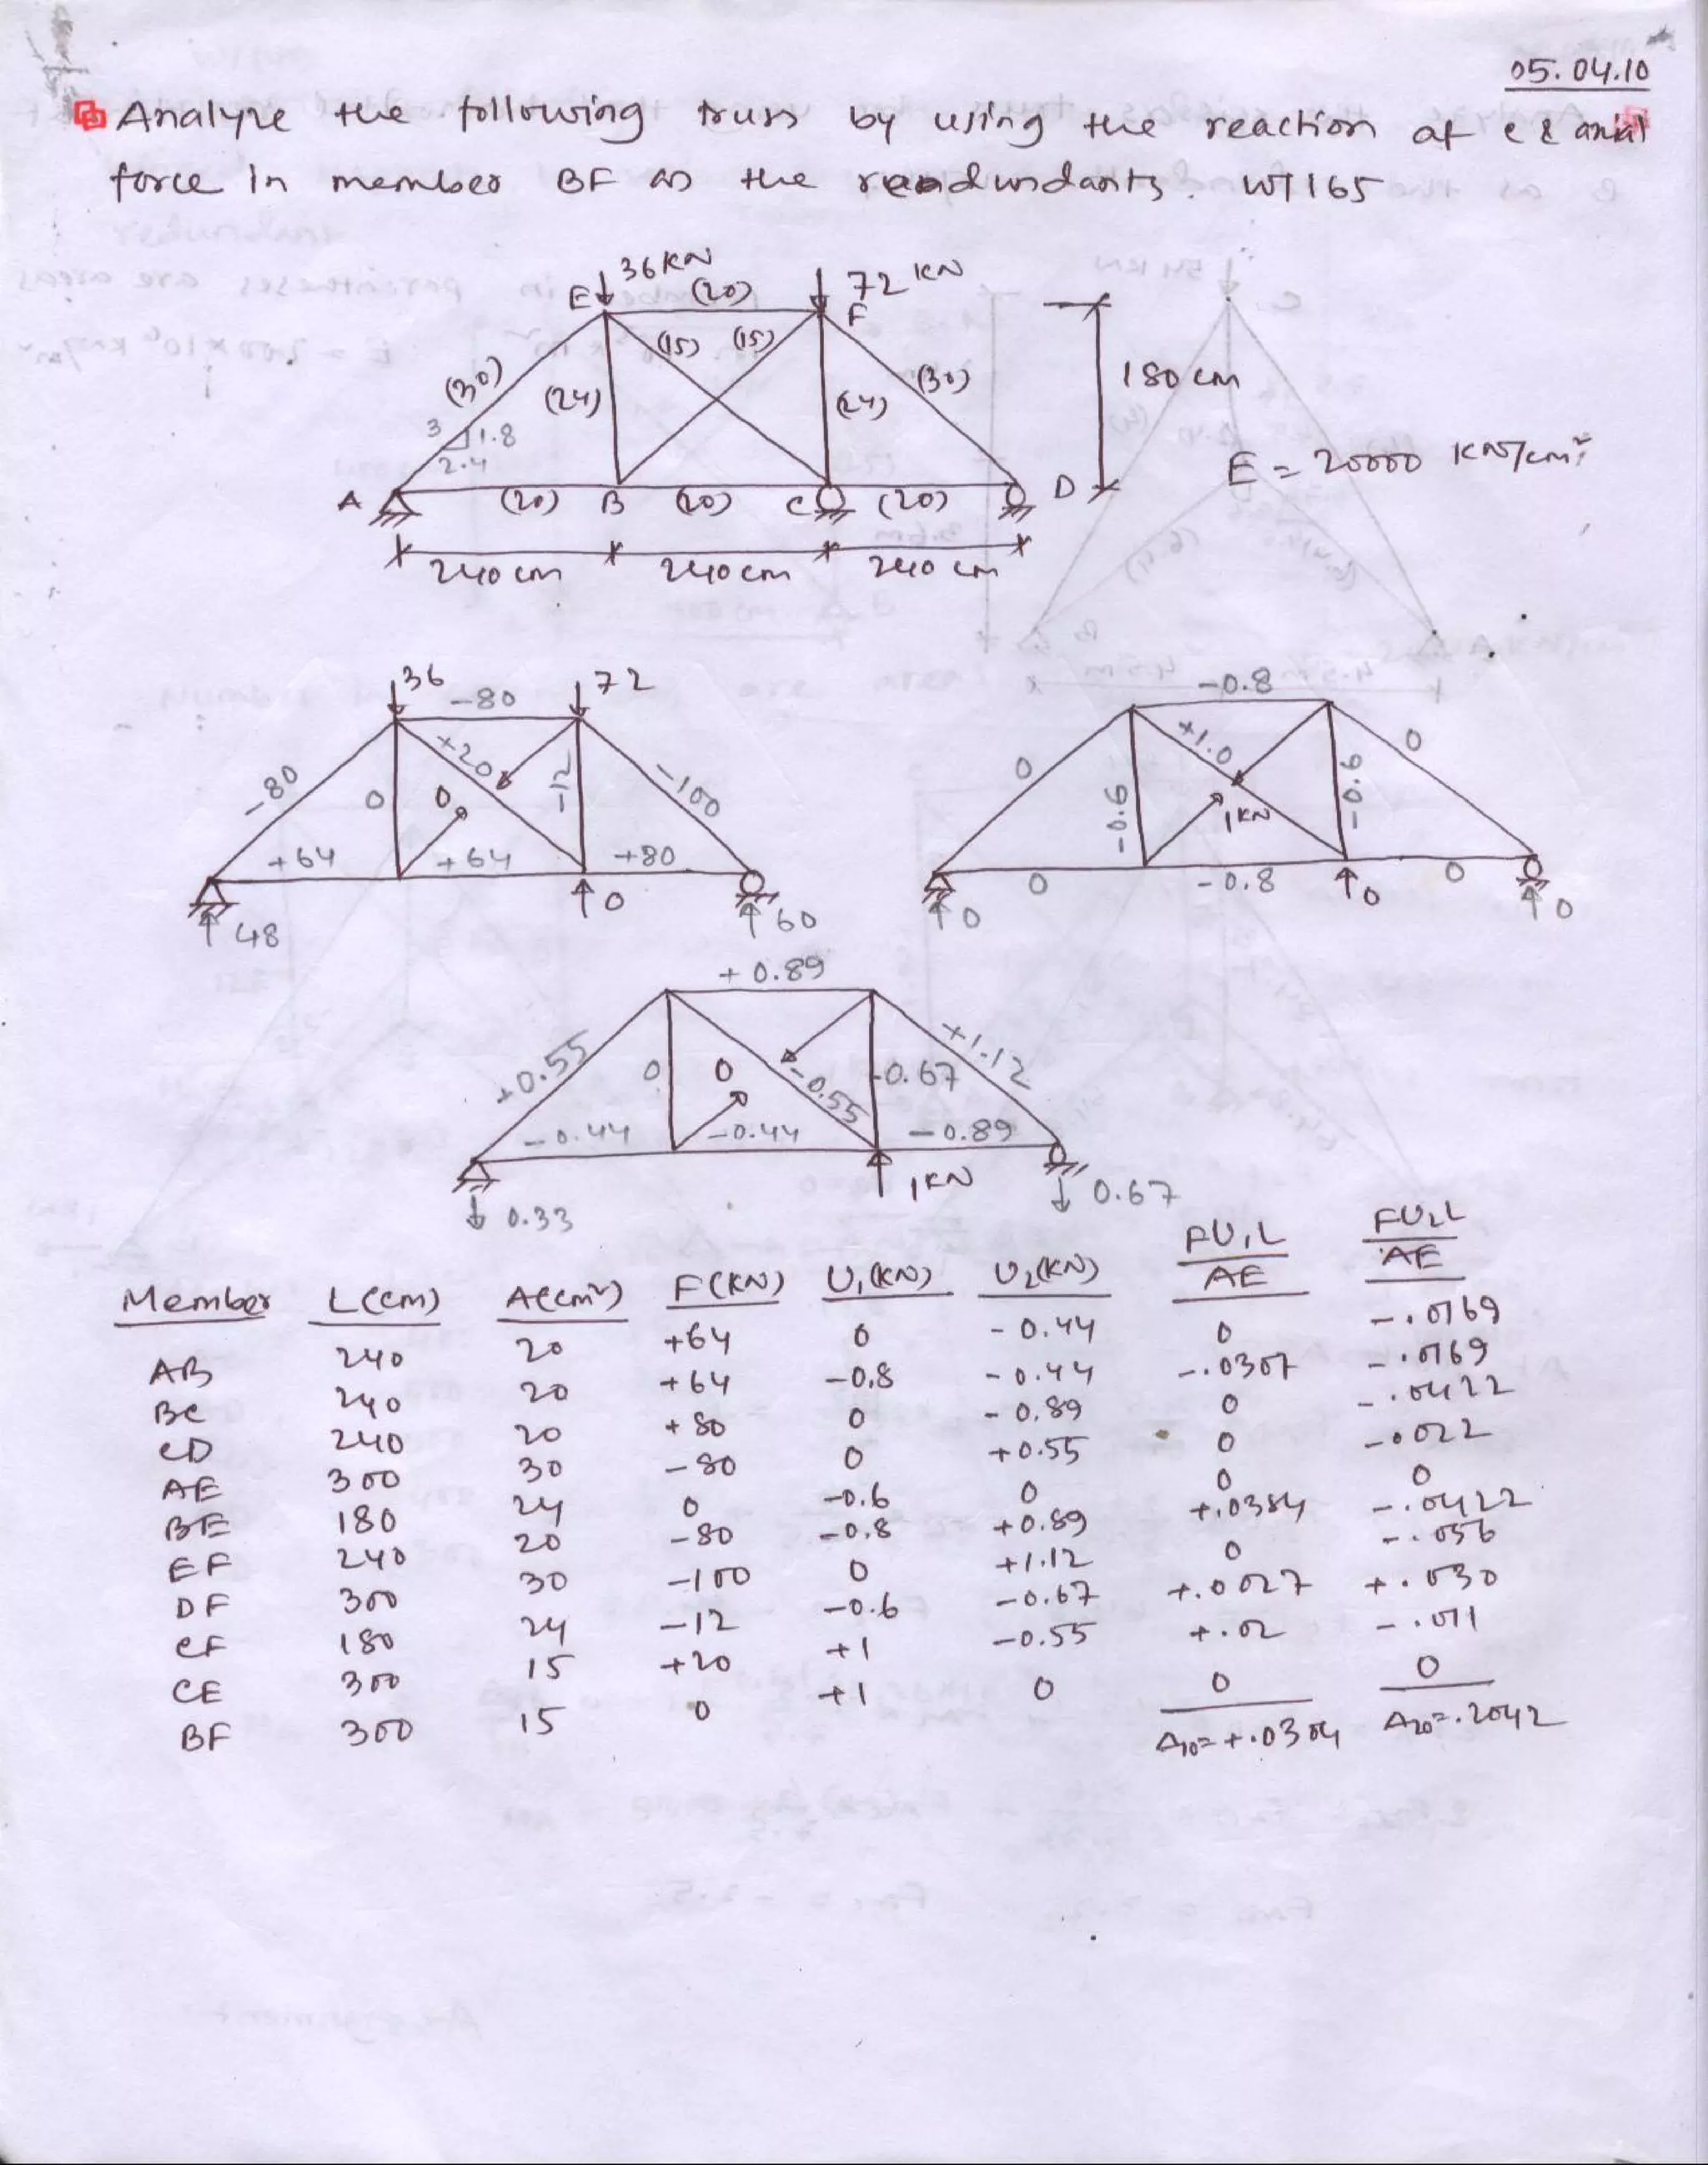 05.04.10
Analyze the following truss by using the reaction at C & axial
force in member BF as the reaedundants. WT165
36 KN
72 KN
E (20) F
(15) (15)
(30) (24) (24) (30)
180 cm
3 1.8
2.4
E = 20000 KN/cm²
A (20) B (20) C (20) D
240 cm 240 cm 240 cm
36 72
-80
-80 0 +20 -12 -100
0
+64 +64 +80
48 0 60
-0.8
0 -0.6 +1.0 -0.6 0
1KN
0 -0.8 0
0 0 0
+0.89
+0.55 0 0 -0.55 -0.67 +1.12
-0.44 -0.44 -0.89
0.33 1KN 0.67
Member L(cm) A(cm²) F(KN) U₁(KN) U₂(KN) FU₁L/AE FU₂L/AE
AB 240 20 +64 0 -0.44 0 -.0169
BC 240 20 +64 -0.8 -0.44 -.0307 -.0169
CD 240 20 +80 0 -0.89 0 -.0422
AE 300 30 -80 0 +0.55 0 -.022
BE 180 24 0 -0.6 0 0 0
EF 240 20 -80 -0.8 +0.89 +.0384 -.0422
DF 300 30 -100 0 +1.12 0 -.056
CF 180 24 -12 -0.6 -0.67 +.0027 +.030
CE 300 15 +20 +1 -0.55 +.02 -.011
BF 300 15 0 +1 0 0 0
Δ₁₀=+.0304 Δ₂₀=.2042